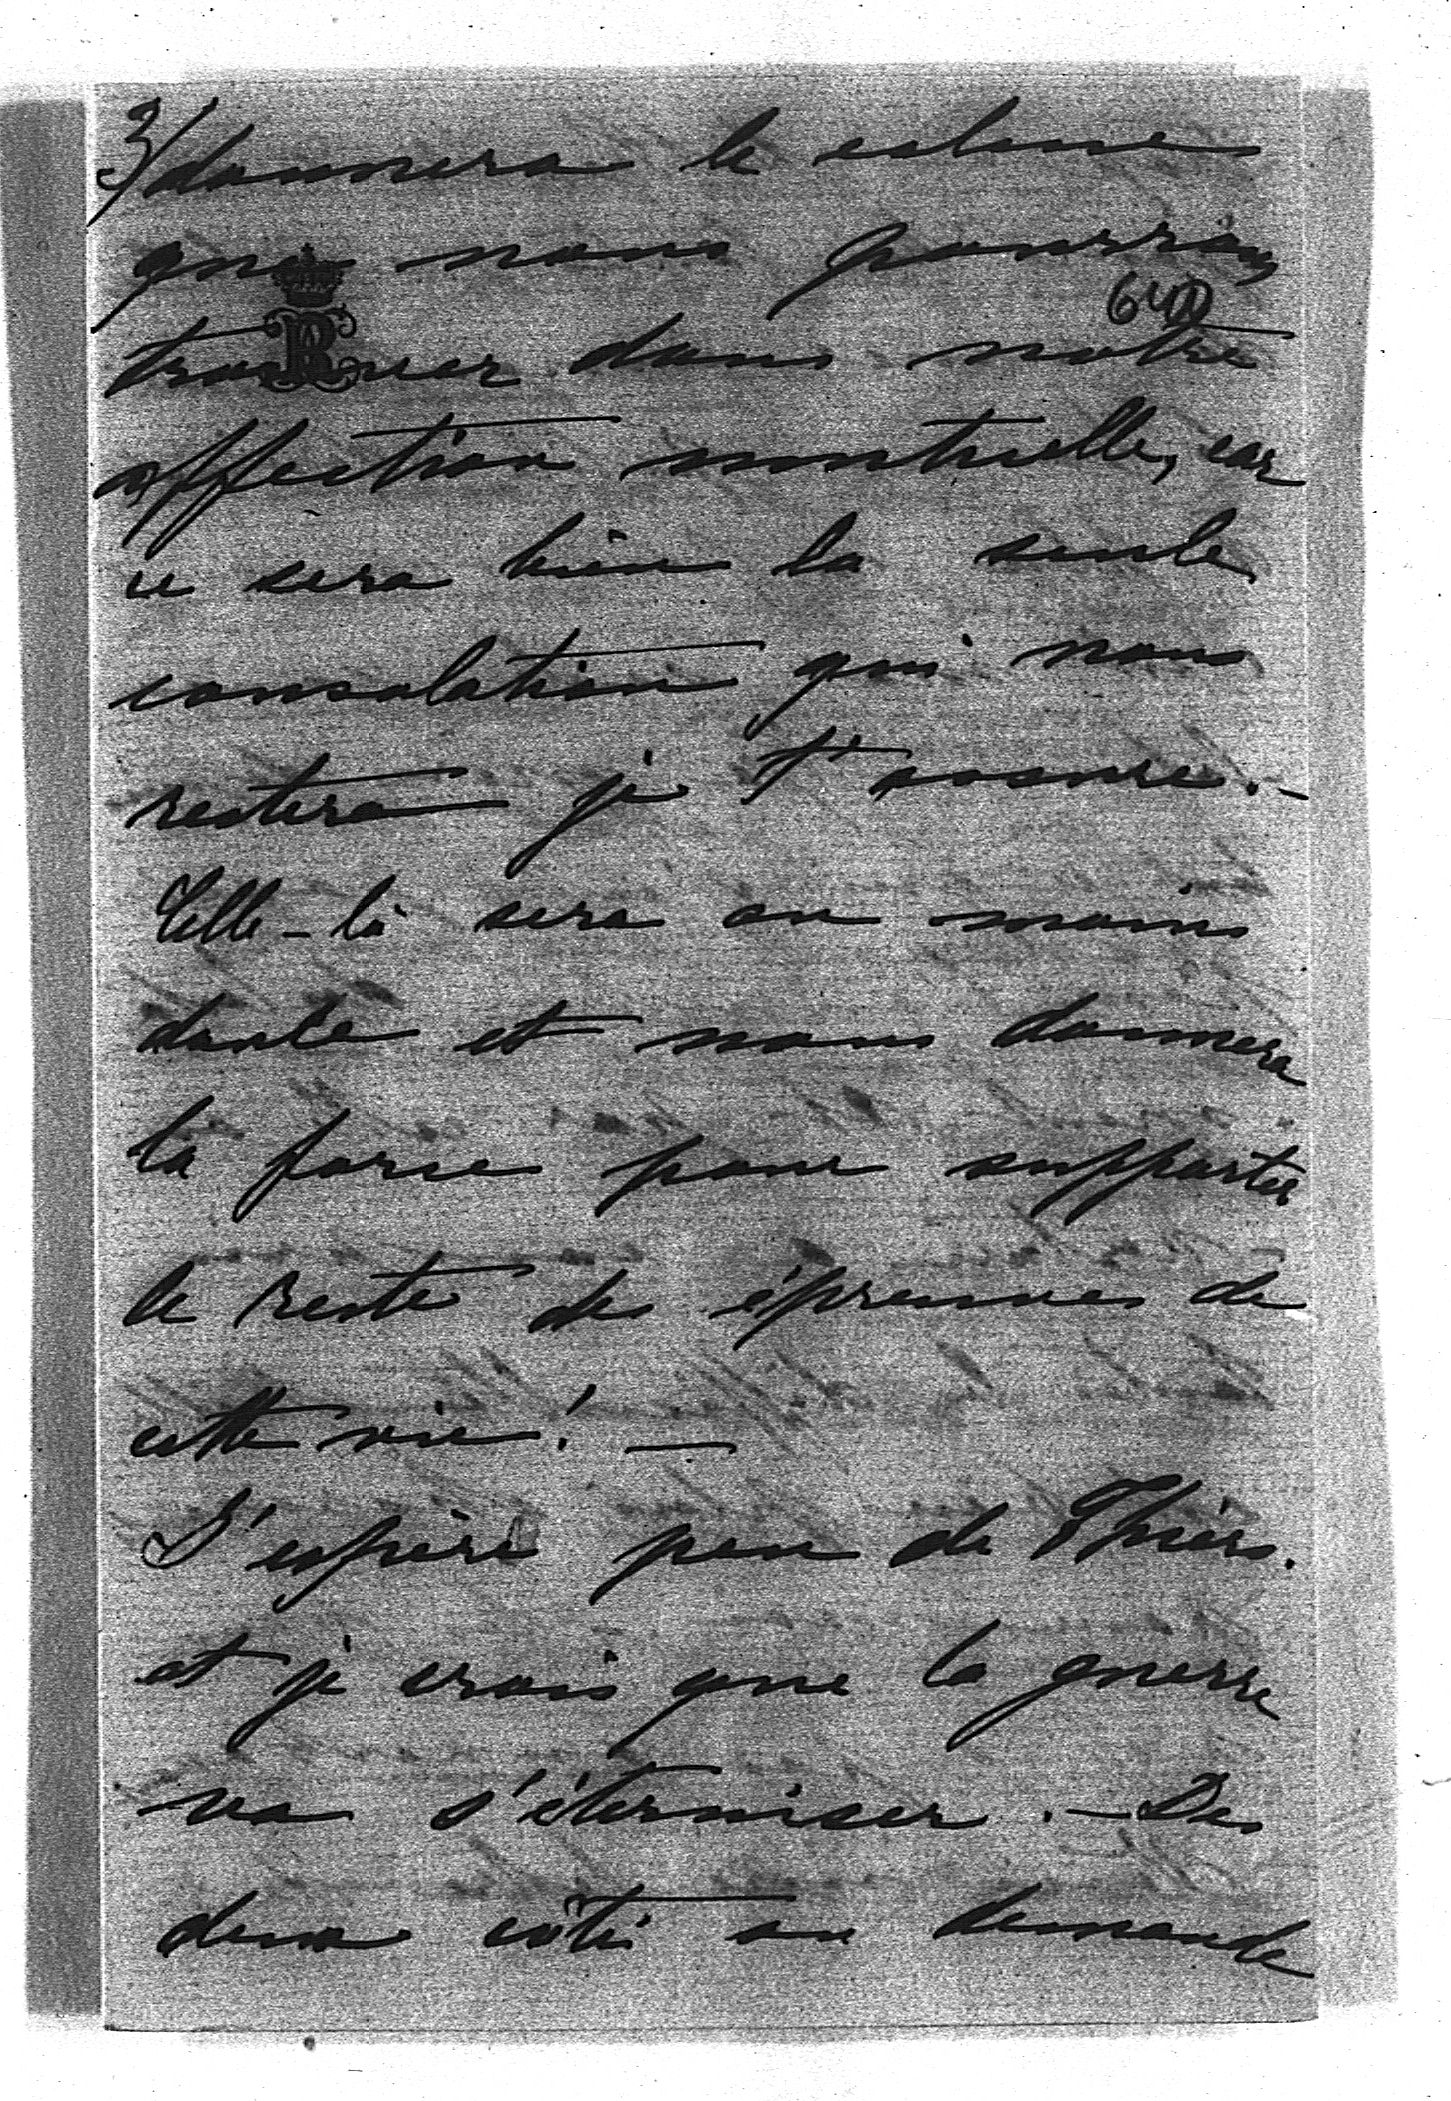 3/ donnera le calme
que nous pourrons
640
trouver dans notre
affection mutuelle, car
ce sera bien la seule
consolation qui nous
restera je t'assure. –
Celle-là sera au moins
et nous donnera
la force pour supporter
le reste des épreuves de
cette vie! —
J'espère peu de Thiers.
et je crois que la guerre
va s'éterniser. – Des
deux côté on demande